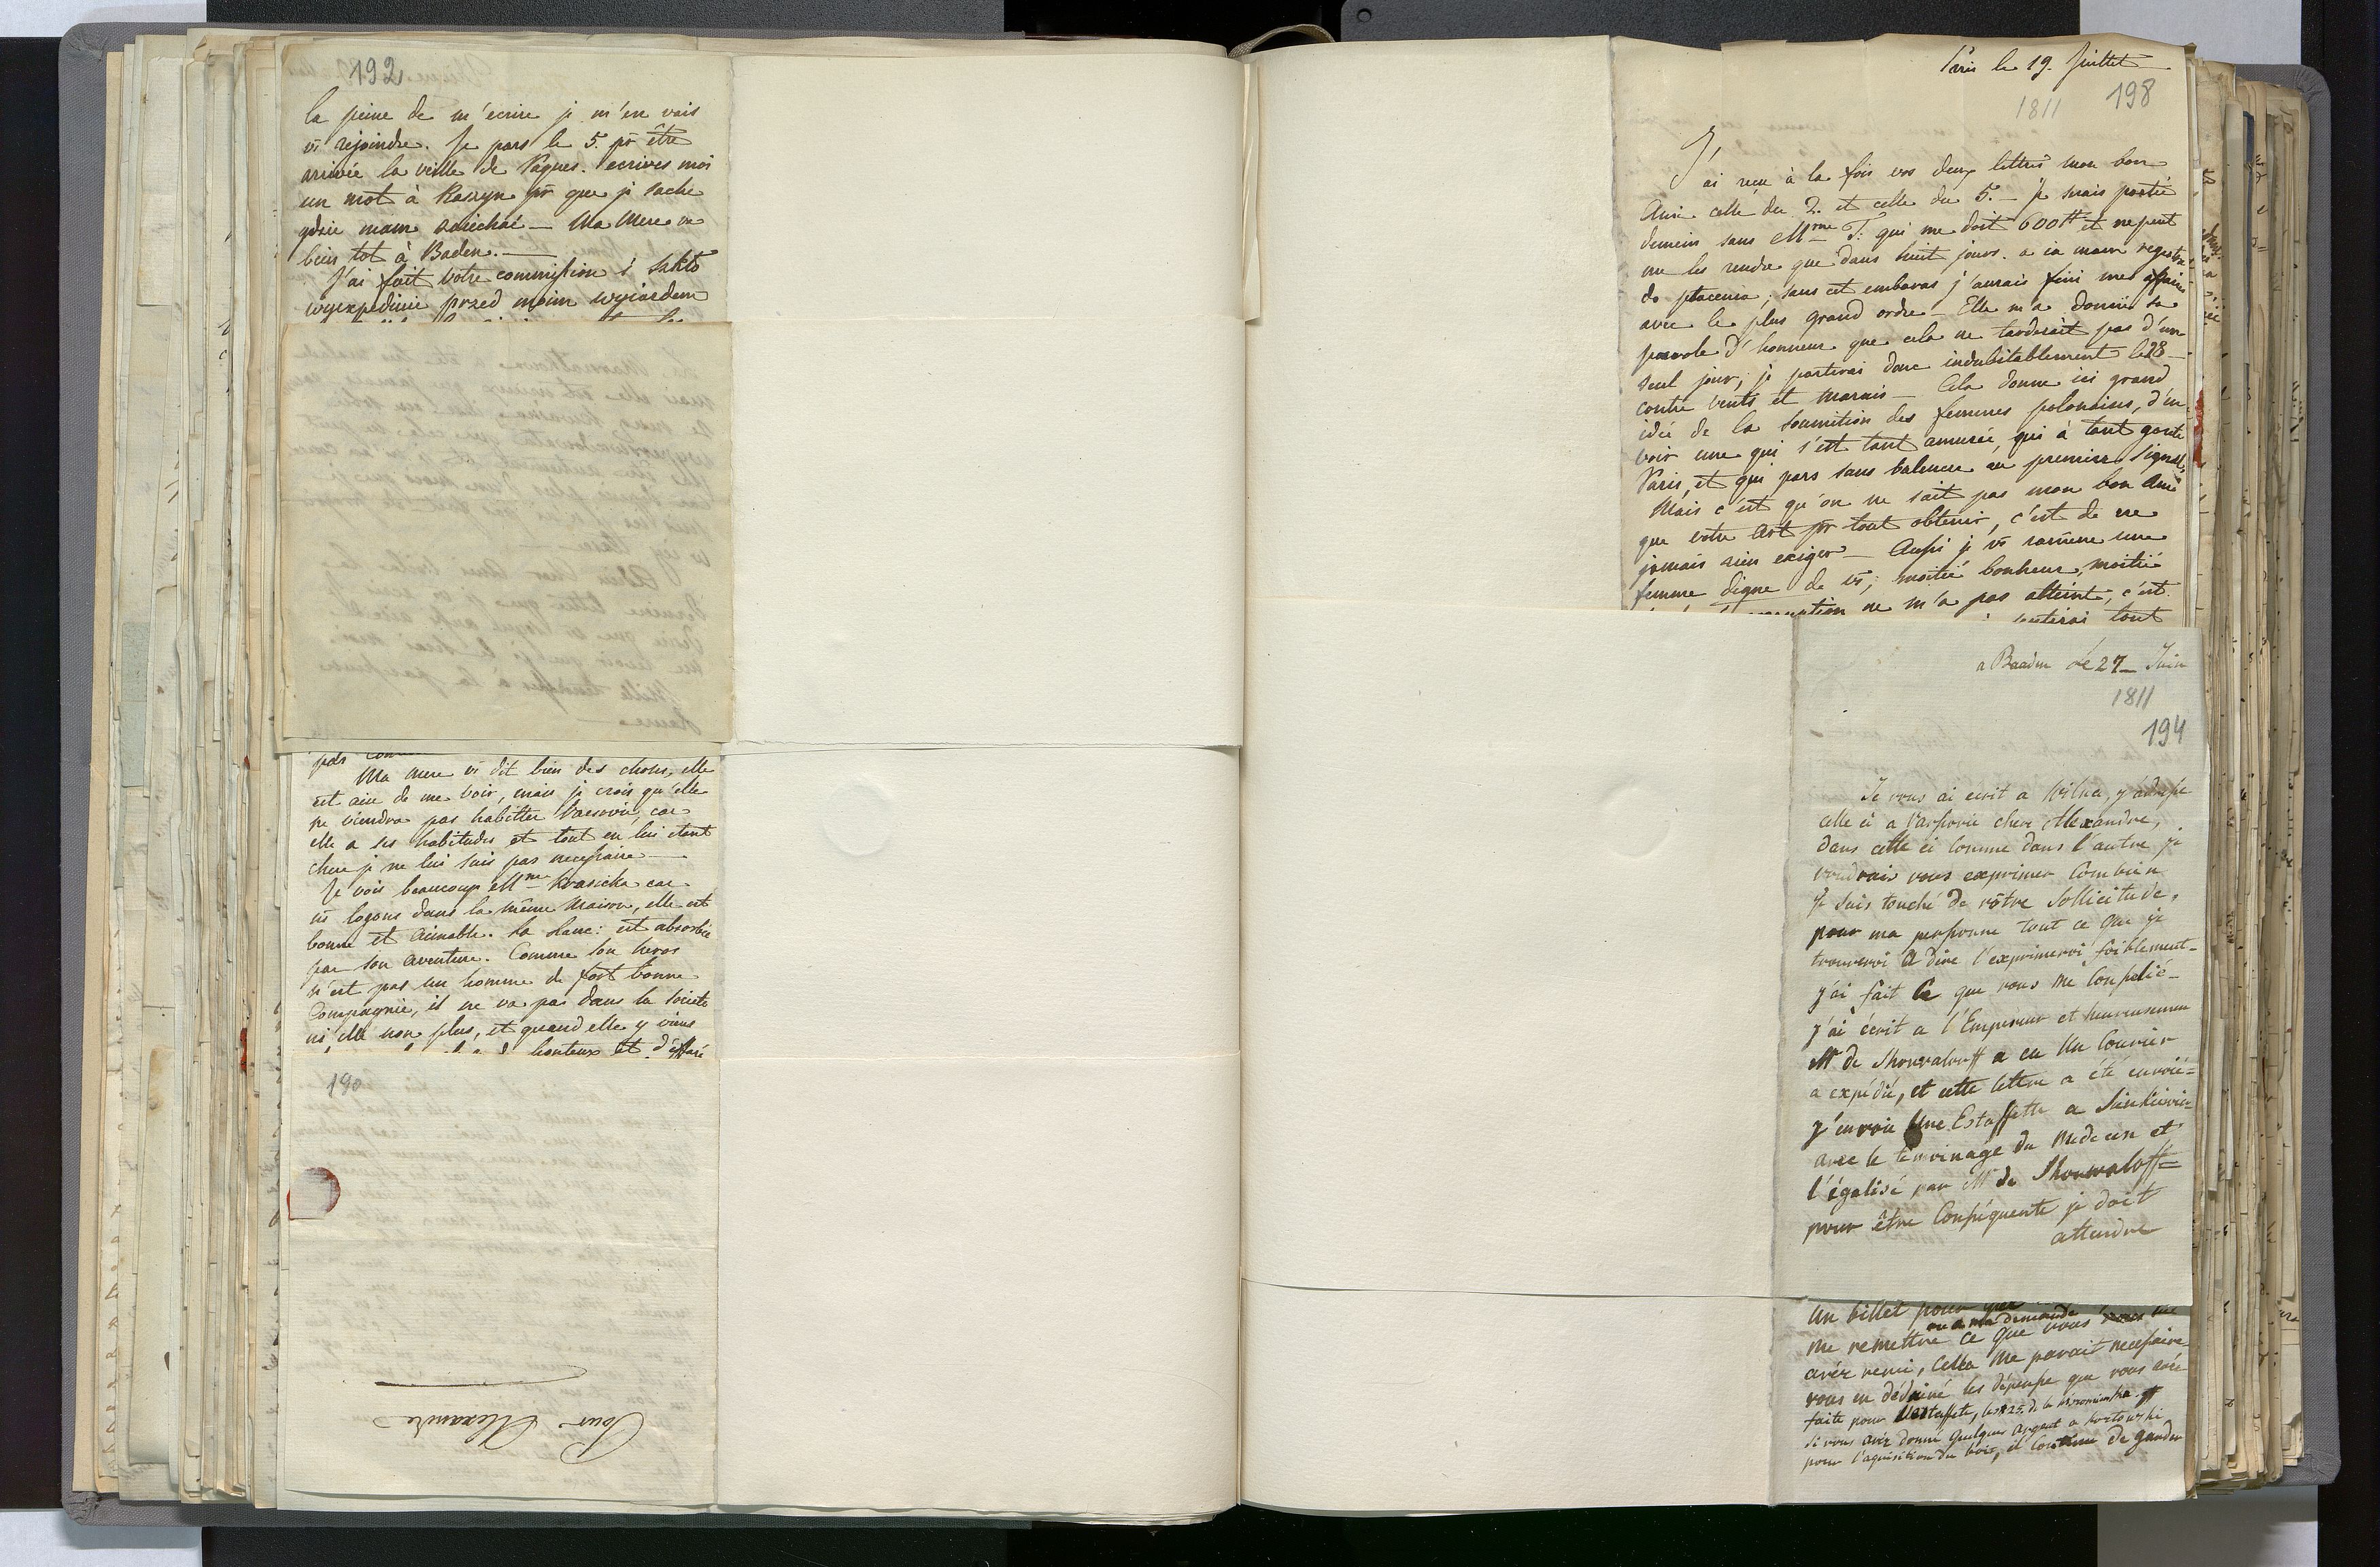 192
la peine de m'ecrire je m'en vais
vs rejoindre. Je pars le 5. pr être
arrivée la veille de Paques. ecrives moi
un mot à Raszyn pr que je sache
gdzie mam zaiechać — Ma Mere va
bien tot à Baden. —
J'ai fait votre commission i sukto
wyexpediuie przed moim wyiazdem
pas
Ma mere vs dit bien des choses, elle
est aise de me voir, mais je crois qu'elle
ne viendra pas habitter Varsovie, car
elle a ses habitudes et tout en lui etant
chere je ne lui suis pas necessaire —
Je vois beaucoup Mme Krasicka car
ns logons dans la même Maison, elle est
bonne et aimable. La est absorbée
par son aventure. Comme son heros
n'est pas un homme de fort bonne
Compagnie, il ne va pas dans la societé
ni elle non plus, et quand elle y viens
honteux et d'effaré
190
Pour Alexandre
Paris le 19. Juillet
1811 198
J'ai reçu à la fois vos deux lettres mon bon
Ami celle du 2. et celle du 5. — Je serais partie
demain sans Mme T: qui me doit 600 et ne peut
me les rendre que dans huit jours. a ia mam
do płacenia; sans cet embaras j'aurais fini mes affaires
avec le plus grand ordre — Elle m'a donné sa
parole d'honneur que cela ne tarderait pas d'un
seul jour, je partirai donc indubitablement le 28 —
contre vents et marais — Cela donne ici grand
idée de la soumition des femmes polonaises, d'en
voir une qui s'est tant amusée, qui à tant gouté
Paris, et qui pars sans balencer au premier signal,
Mais c'est qu'on ne sait pas mon bon Ami
que votre Art pr tout obtenir, c'est de ne
jamais rien exiger — Aussi je vs ramene une
femme digne de vs; moitié bonheur, moitié
ne m'a pas atteint, c'est
tout
a Baaden le 27 — Juin
1811
194
Je vous ai ecrit a Wilna, j'adresse
celle ci a Varsovie cher Alexandre,
dans celle ci comme dans l'autre je
voudrais vous exprimer Combien
je suis touché de vôtre Sollicitude,
pour ma personne tout ce que je
trouveroi a dire l'exprimeroi foiblement —
j'ai fait ce que vous me Conseliés —
j'ai écrit a l'Empereur et heureusemen
Mr de Shouvaloff a eu un Courier
a expédié, et cette lettre a été envoié =
j'envoie une Estaffette a
avec le temoinage du Medecin et
l'égalisé par Mr de Shouvaloff =
pour être Conséquente je doit
attendre
un billet pour que
ou a ma demande
me remettre ce que vous me
avéz remi, Cella me parait necessaire
vous en déduiré les dépense que vous avée
faite pour l'estaffete, les # 25. de la
si vous avéz donné quelques Argent a
pour l'aquisition du bois, il de garder